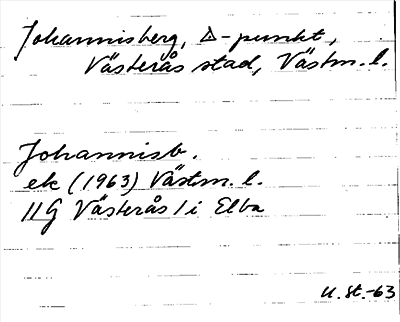 Johannisberg, Δ-punkt,
Västerås stad, Västm. l.
Johannisb.
ek (1963) Västm. l.
11G Västerås 1 i Elba
U. St. -63